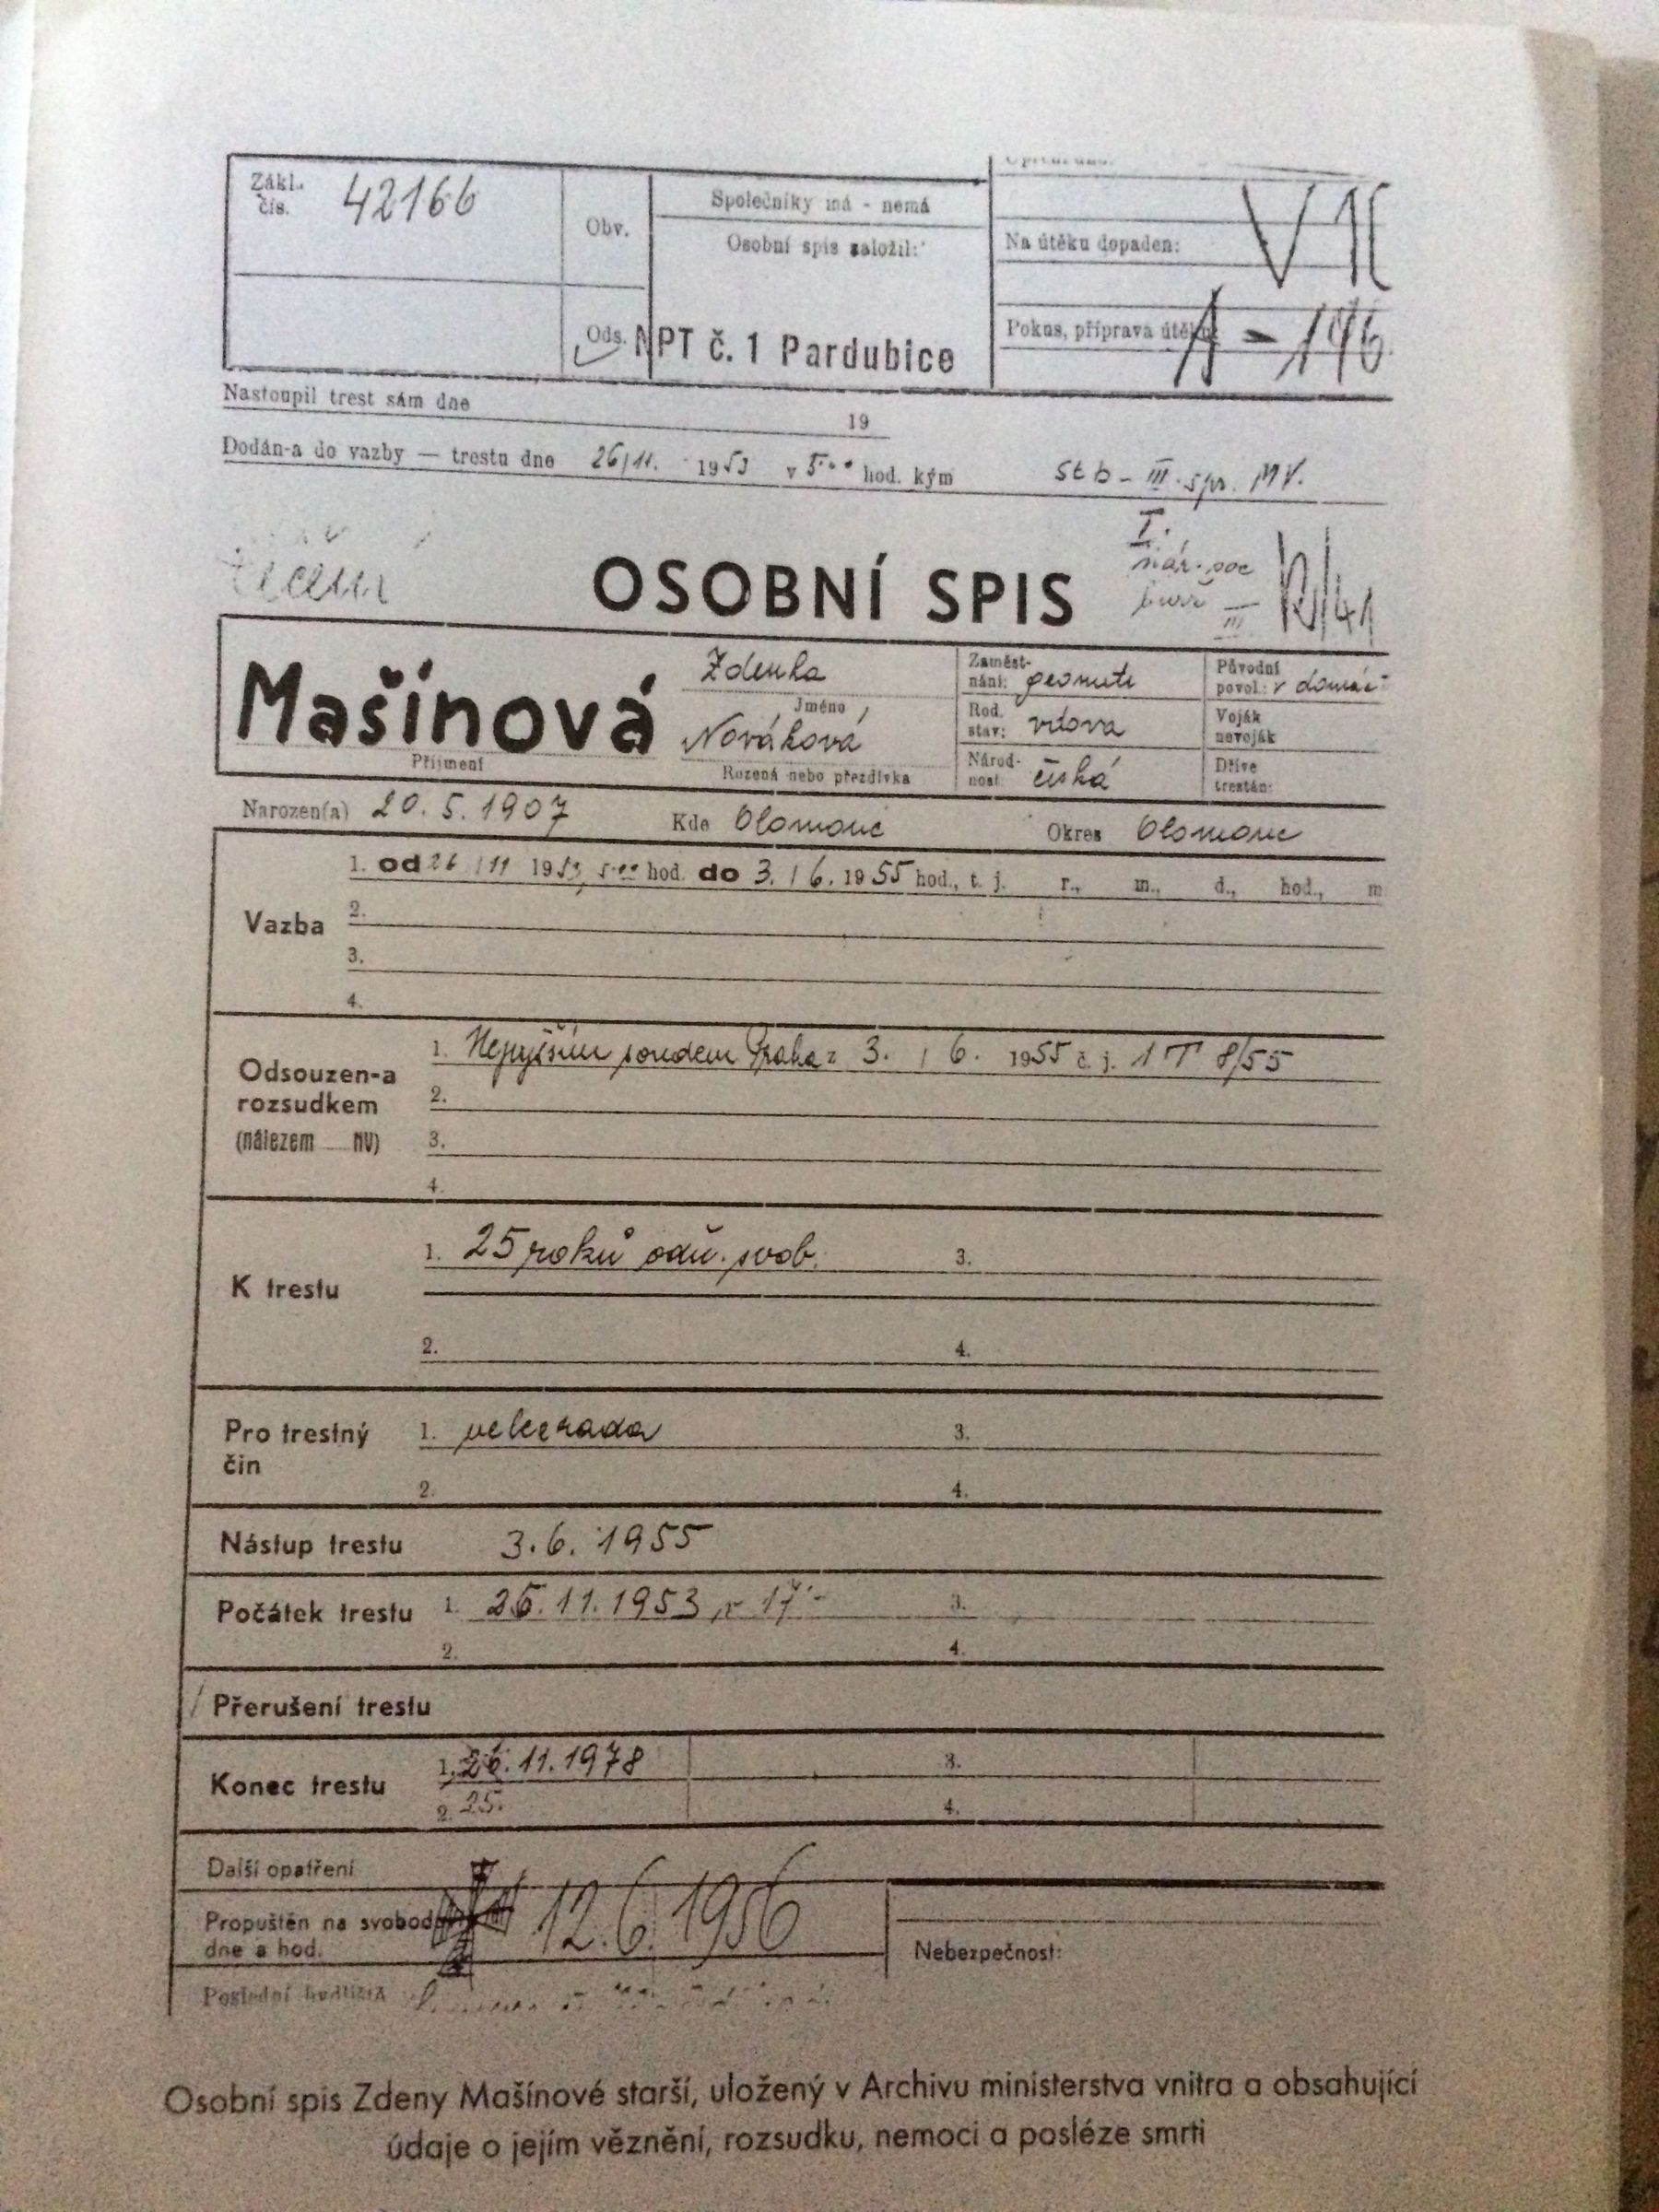 Zákl. čís. 42166
Obv.
Společníky má - nemá
Osobní spis založil:
Na útěku dopaden:
Ods. NPT č. 1 Pardubice
Pokus, příprava útěku:
A - 146
Nastoupil trest sám dne 19
Dodán-a do vazby — trestu dne 26/11. 1953 v 5.00 hod. kým Stb - III. spr. MV.
I.
OSOBNÍ SPIS
III
Mašínová
Příjmení
Zdenka
Jméno
Nováková
Rozená nebo přezdívka
Zaměst-nání: geometr
Rod. stav: vdova
Národ-nost česká
Původní povol.: v domác
Voják nevoják
Dříve trestán:
Narozen(a) 20. 5. 1907 Kde Olomouc Okres Olomouc
Vazba
1. od 26/11 1953, 5.00 hod. do 3./6. 1955 hod., t. j. r., m., d., hod., m
2.
3.
4.
Odsouzen-a rozsudkem (nálezem NV)
1. Nejvyšším soudem Praha z 3. / 6. 1955 č. j. 1 T 8/55
2.
3.
4.
K trestu
1. 25 roků odň. svob. 3.
2. 4.
Pro trestný čin
1. velezrada 3.
2. 4.
Nástup trestu 3. 6. 1955
Počátek trestu 1. 26. 11. 1953 v 17 3.
2. 4.
Přerušení trestu
Konec trestu
1. 26. 11. 1978 3.
2. 25. 4.
Další opatření
Propuštěn na svobodu dne a hod. 12. 6. 1956
Nebezpečnost:
Poslední bydliště
Osobní spis Zdeny Mašínové starší, uložený v Archivu ministerstva vnitra a obsahující
údaje o jejím věznění, rozsudku, nemoci a posléze smrti